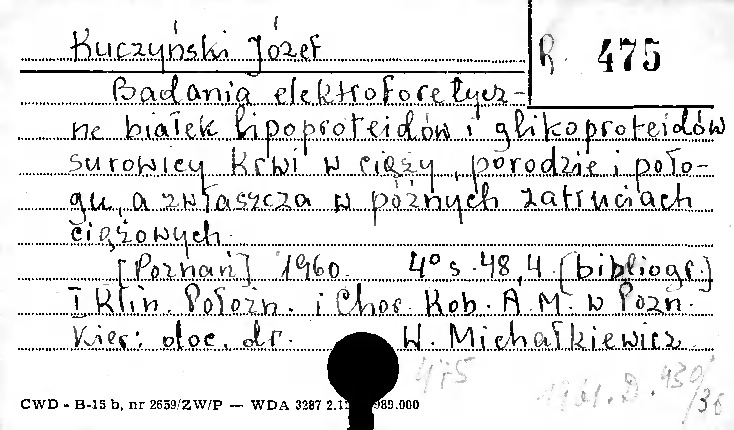 Kuczyński Józef
R. 475
Badania elektroforetycz-
ne białek lipoproteidów i glikoproteidów
surowicy krwi w ciąży, porodzie i poło-
gu, a zwłaszcza w późnych zatruciach
ciążowych.
[Poznań] 1960. 4° s. 48, 4. [bibliogr.]
I Klin. Położn. i Chor. Kob. A. M. w Pozn.
Kier: doc. dr. W. Michałkiewicz
475
1961. D. 430/36
CWD - B-15 b, nr 2659/ZW/P — WDA 3287 2.12 989.000